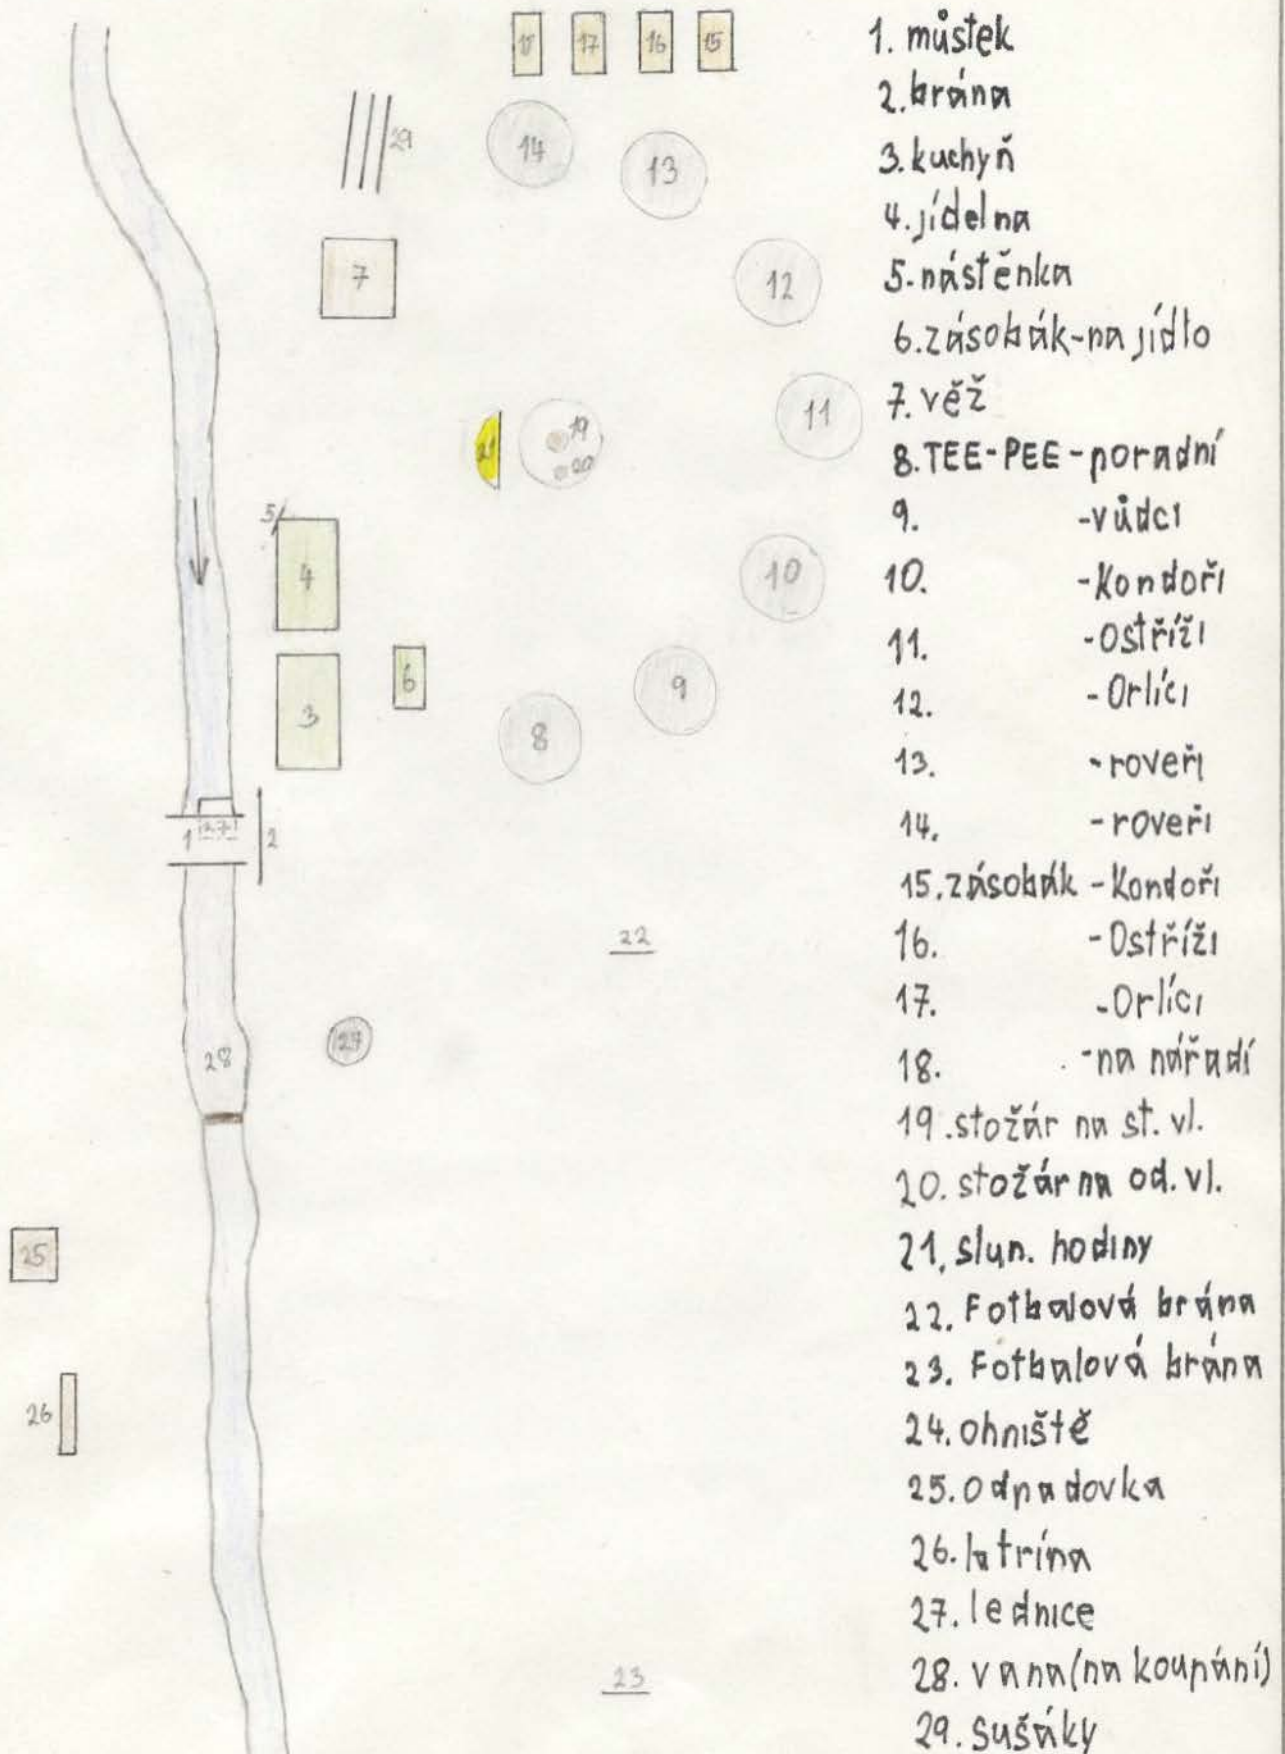 18 17 16 15
29
14
13
7
12
11
21
19
20
5
4
10
6
3
9
8
1
27
2
22
28
25
26
23
1. můstek
2. brána
3. kuchyň
4. jídelna
5. nástěnka
6. zásobák-na jídlo
7. věž
8. TEE-PEE - poradní
9. -vůdci
10. -Kondoři
11. -Ostříži
12. -Orlíci
13. -roveři
14. -roveři
15. zásobák - Kondoři
16. -Ostříži
17. -Orlíci
18. -na nářadí
19. stožár na st. vl.
20. stožár na od. vl.
21. slun. hodiny
22. Fotbalová brána
23. Fotbalová brána
24. ohniště
25. Odpadovka
26. latrína
27. lednice
28. vana (na koupání)
29. sušáky